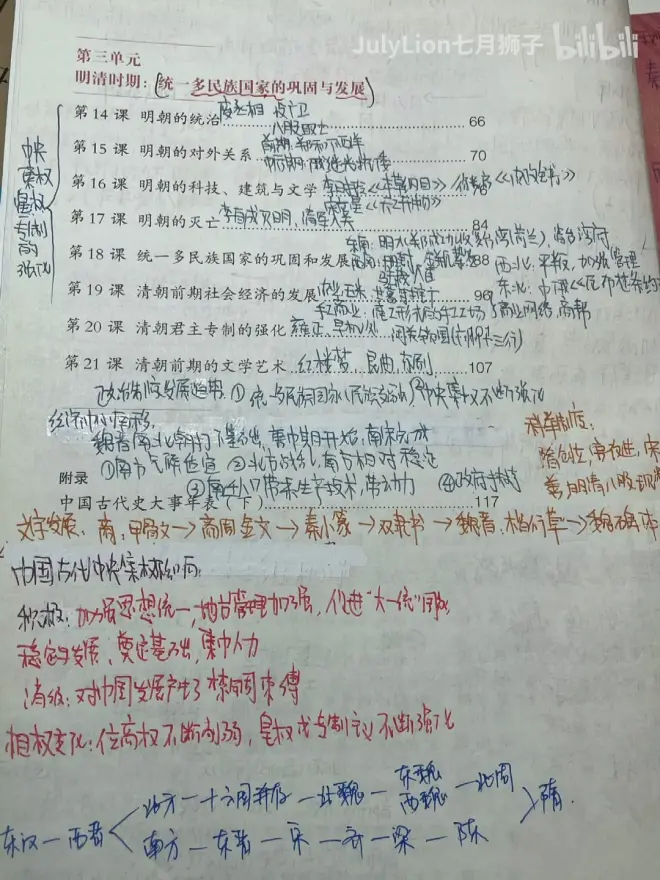 JulyLion七月狮子 bilibili
第三单元
明清时期：统一多民族国家的巩固与发展
第 14 课 明朝的统治 废丞相 设厂卫 66
八股取士
第 15 课 明朝的对外关系 前期：郑和下西洋 70
后期：戚继光抗倭
第 16 课 明朝的科技、建筑与文学 李时珍《本草纲目》 徐光启《农政全书》
宋应星《天工开物》
第 17 课 明朝的灭亡 李自成灭明，清军入关 84
东南：明末郑成功收复台湾(荷兰)，
第 18 课 统一多民族国家的巩固和发展 88
西北：平叛，加强管理
驻藏大臣
第 19 课 清朝前期社会经济的发展 96
第 20 课 清朝君主专制的强化 雍正，军机处 闭关锁国
第 21 课 清朝前期的文学艺术 红楼梦 昆曲，京剧 107
中央集权皇权专制的强化
政治制度发展趋势 ① 统一多民族国家 ②中央集权不断强化
经济中心南移
①南方气候适宜 ②北方战乱，南方相对稳定
④政府扶持
附录
中国古代史大事年表（下） 117
科举制度：
隋创立，
文字发展：商：甲骨文→商周金文→秦小篆→汉隶书→魏晋：楷行草→
中国古代中央集权影响：
积极：加强思想统一，地方管理加强，促进"大一统"国家
稳定与发展，奠定基础，集中人力
消极：对中国发展产生了禁锢束缚
相权变化：位高权不断削弱，皇权或专制主义不断强化
东汉—西晋
北方—十六国—北魏—东魏 西魏—北周
南方—东晋—宋—齐—梁—陈
隋